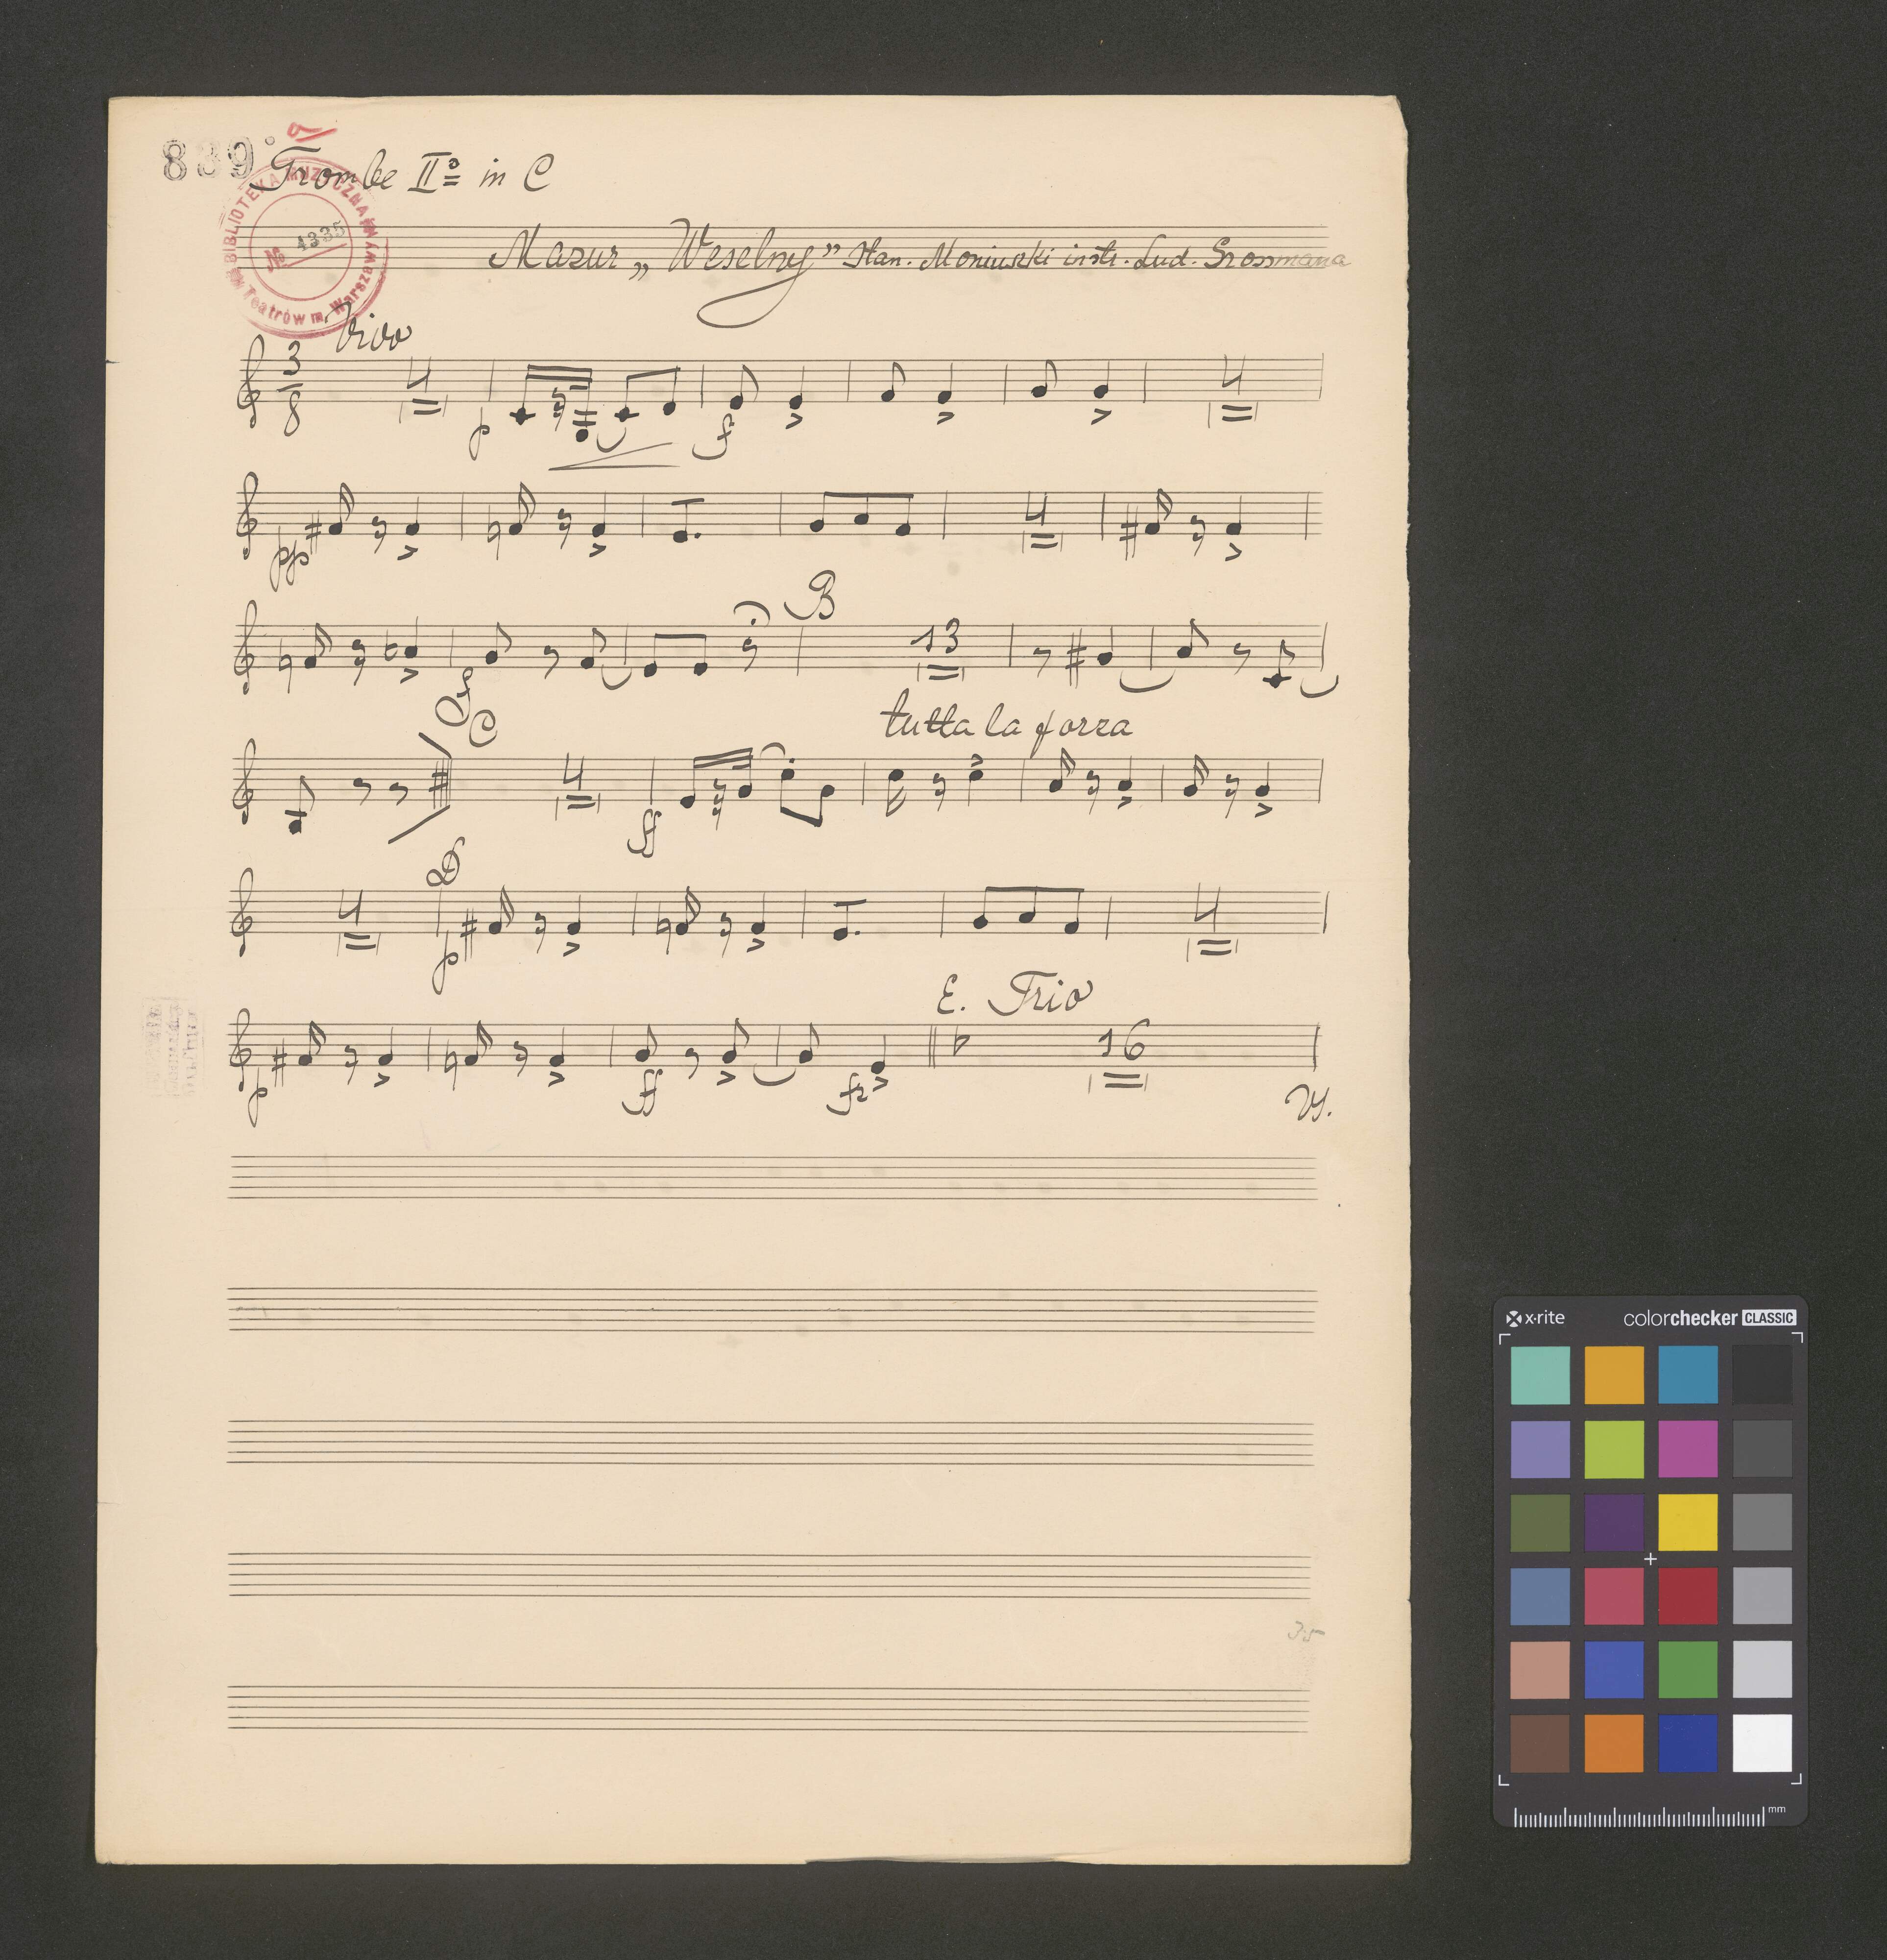 839
Trombe IIo in C
BIBLIOTEKA MUZYCZNA
Teatrów m. Warszawy
№ 4335
Mazur „Weselny” Stan. Moniuszki instr. Lud. Grossmana
Vivo
3
8
4
p
f
4
pp
4
B
13
C
tutta la forza
4
ff
4
D
p
4
E. Trio
p
ff
fz
16
VS.
35
x·rite colorchecker CLASSIC
mm